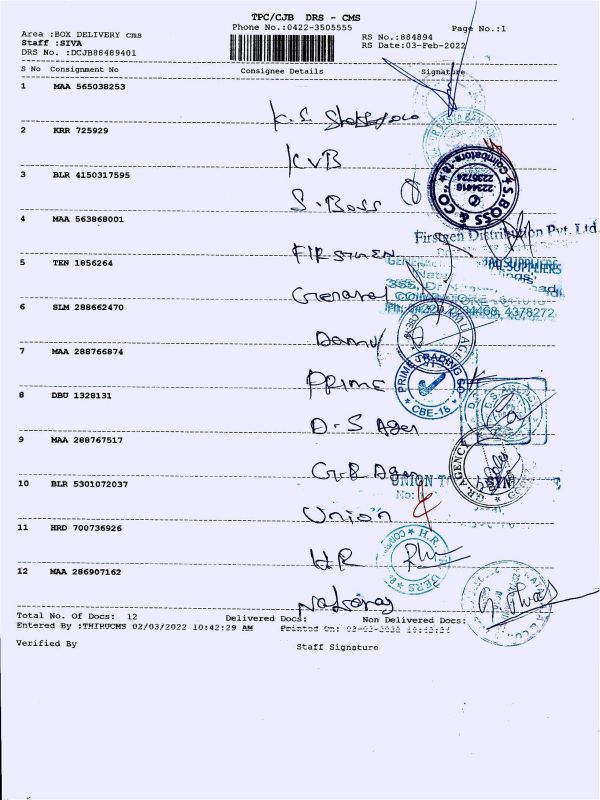 TPC/CJB DRS - CMS
Phone No.:0422-3505555
Page No.:1
Area :BOX DELIVERY cms
RS No.:884894
Staff :SIVA
RS Date:03-Feb-2022
DRS No. :DCJB88489401
S No Consignment No Consignee Details Signature
1 MAA 565038253
K.S
2 KRR 725929
KVB
3 BLR 4150317595
S. Boss
S. BOSS & CO
Coimbatore-18
2234416
4 MAA 563868001
Firstgen Distribution Pvt. Ltd.
5 TEN 1856264
General
SUPPLIERS
6 SLM 288662470
4378272
7 MAA 288766874
Prime
PRIME TRADING CO
CBE-18
8 DBU 1328131
D.S Agen
9 MAA 288767517
G.R Agen
G.R. AGENCY
10 BLR 5301072037
UNION
Union
11 HRD 700736926
HR
12 MAA 286907162
Total No. Of Docs: 12 Delivered Docs: Non Delivered Docs:
Entered By :THIRUCMS 02/03/2022 10:42:29 AM Printed On:
Verified By Staff Signature